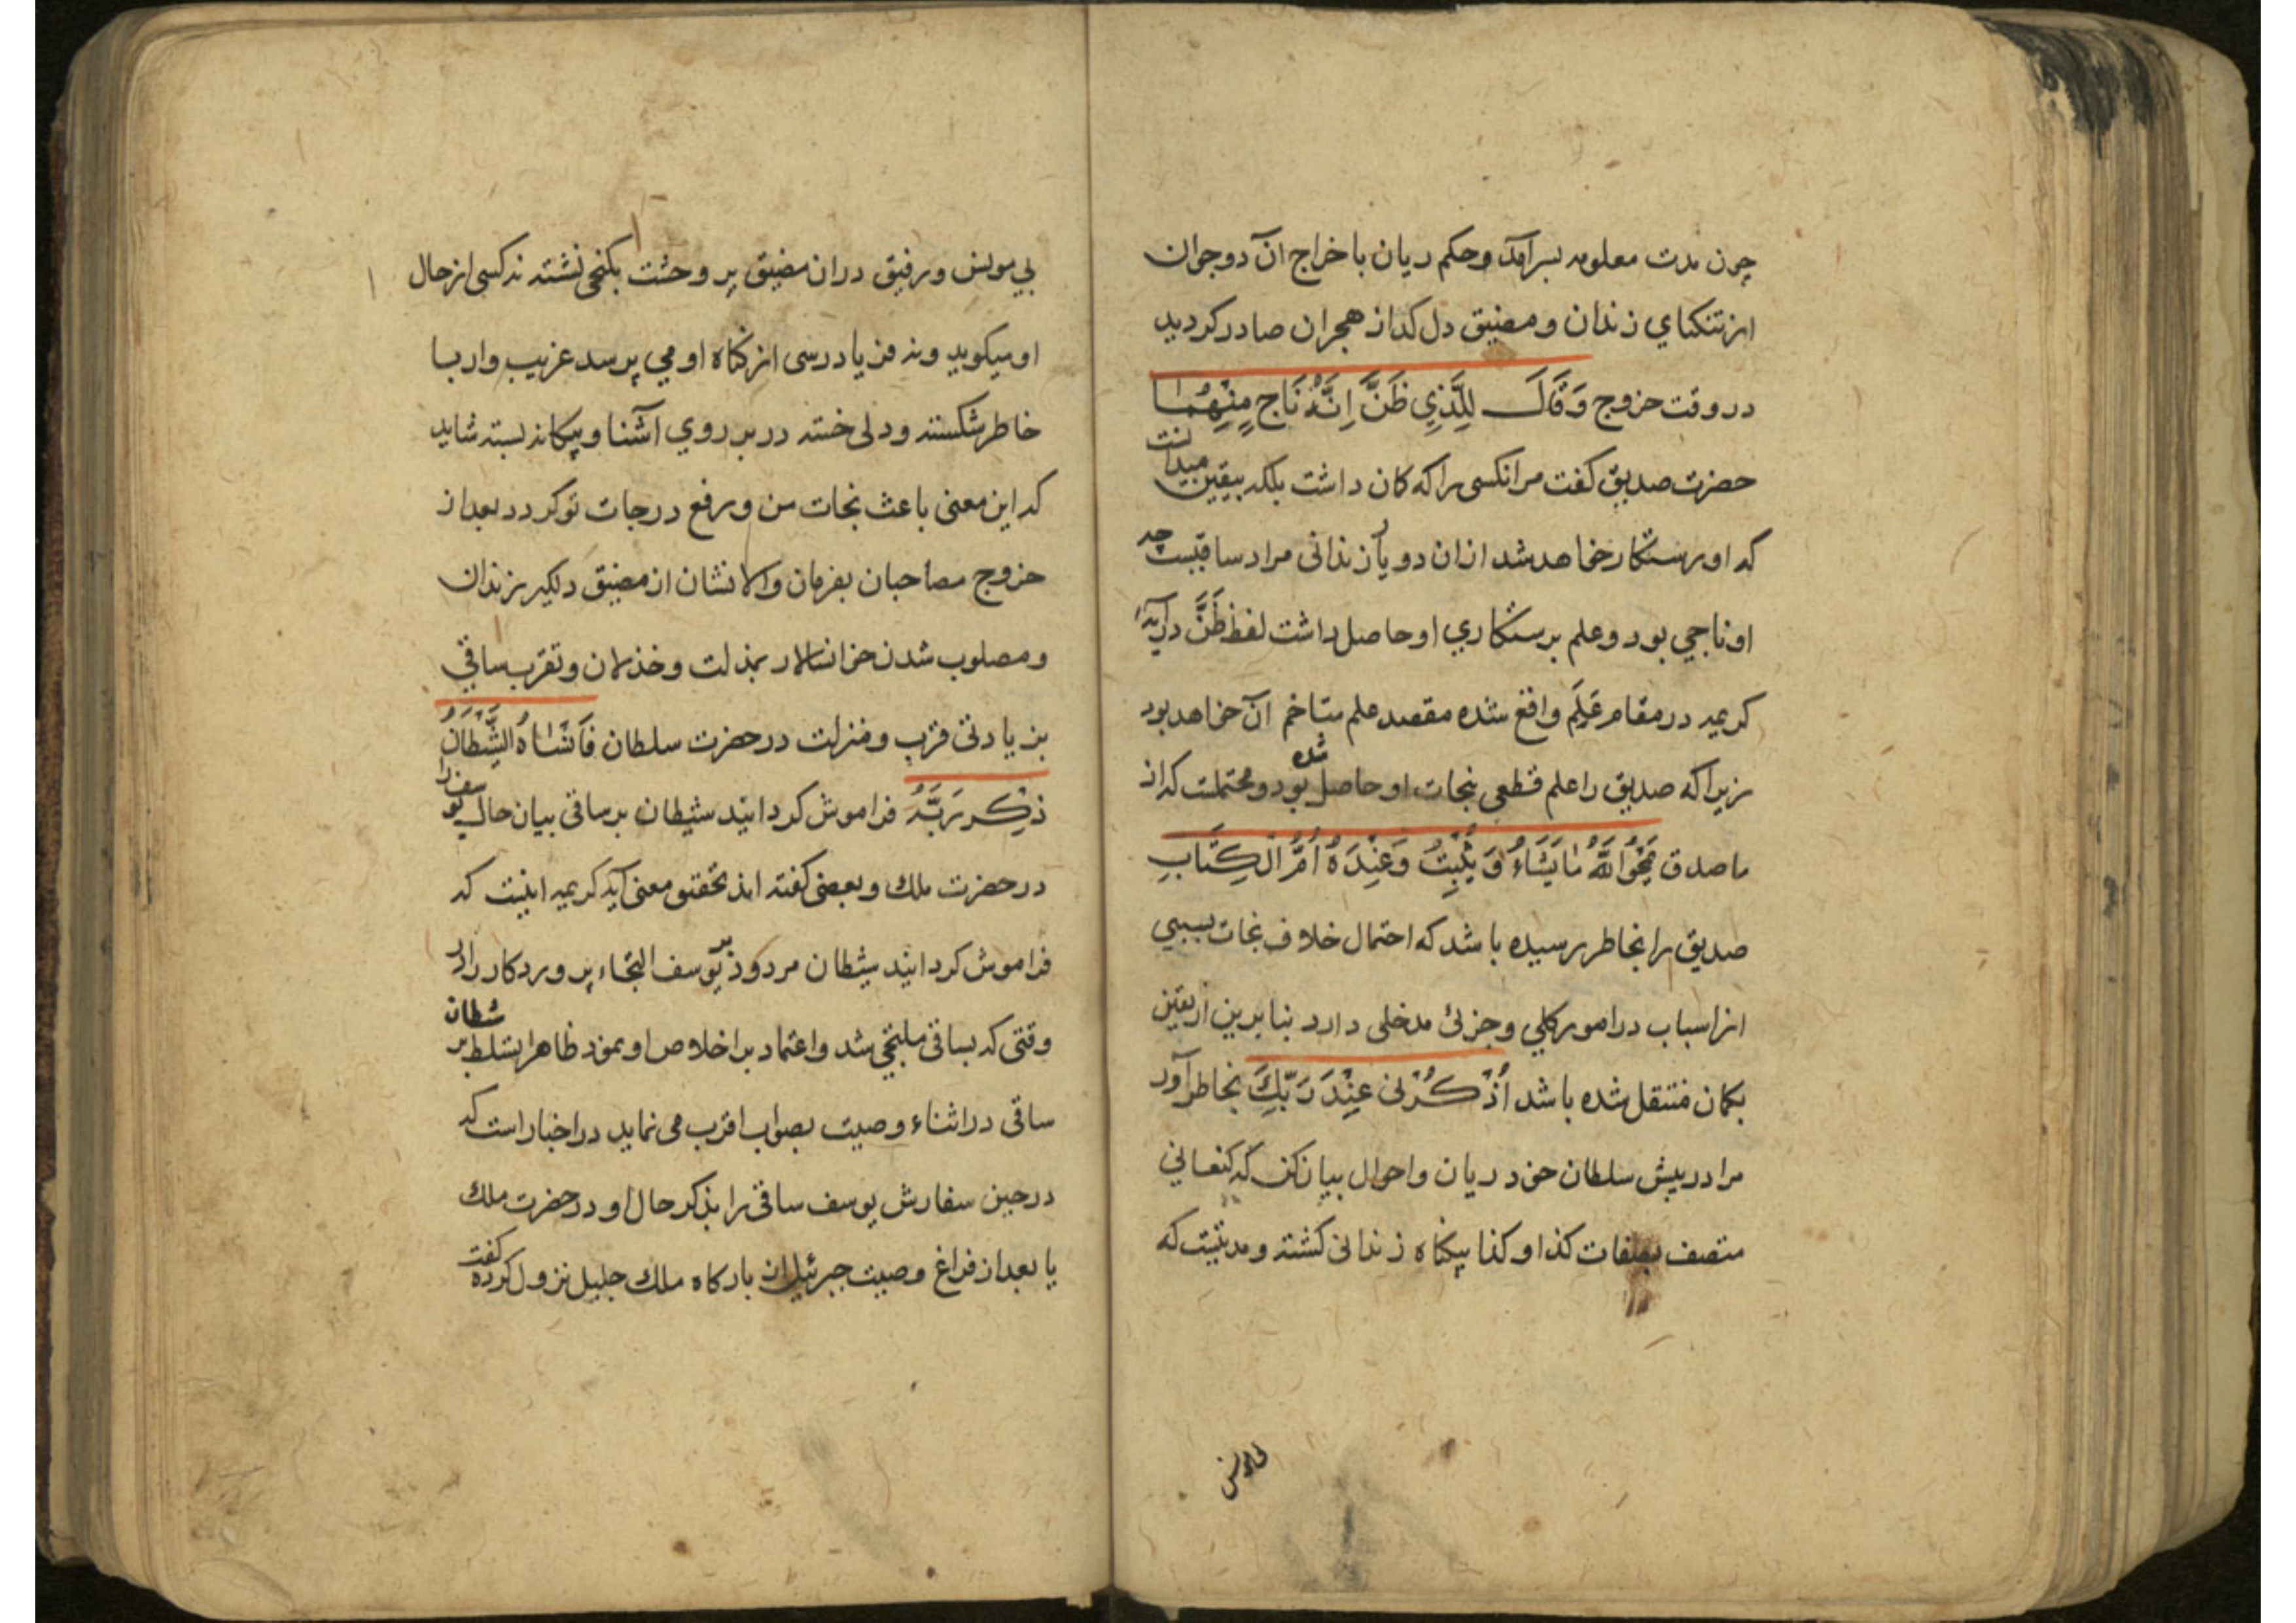 چون مدت معلومه بسر آمد وحکم ریان باخراج آن دوجوان
از تنکنای زندان ومضیق دل کداز هجران صادر کردید
در وقت خروج وَقَالَ لِلَّذِي ظَنَّ اِنَّهُ نَاجٍ مِنْهُمَا
حضرت صدیق کفت مر انکسی را که کان داشت بلکه بیقین میدانست
که او رستکار خواهد شد از ان دو یار زندانی مراد ساقیست چه
او ناجی بود وعلم برستکاري او حاصل داشت لفظ ظَنَّ در آیه
کریمه در مقام عَلِمَ واقع شده مقصد علم متاخم آن خواهد بود
زیرا که صدیق را علم قطعی بنجات او حاصل شده بود ومحتملست که از
ما صدق يَمْحُوا اللَّهُ مَا يَشَاءُ وَ يُثْبِتُ وَعِنْدَهُ اُمُّ الْكِتَابِ
صدیق را بخاطر رسیده باشد که احتمال خلاف نجات بسببی
از اسباب در امور کلي وجزئ مدخلی دارد بنا برین از یقین
بکمان منتقل شده باشد اُذْكُرْنِي عِنْدَ رَبِّكَ بخاطر آور
مرا در پیش سلطان خود ریان واحوال بیان کن که کنعانی
متصف بصفات کذا و کذا بیکناه زندانی کشته ومدتیست که
بي مونس ورفیق دران مضیق پر وحشت بکنجی نشسته نه کسی از حال
او میکوید ونه فریادرسی از کناه او می پرسد غریب وار با
خاطر شکسته ودلی خسته در بر روي آشنا وبیکانه بسته شاید
که این معنی باعث نجات من ورفع درجات تو کردد بعد از
خروج مصاحبان بفرمان والا نشان از مضیق دلکیر زندان
ومصلوب شدن خوانسالار بمذلت وخذلان وتقرب ساقي
بزیادتی قرب ومنزلت در حضرت سلطان فَاَنْسَاهُ الشَّيْطَانُ
ذِكْرَ رَبِّهِ فراموش کردانید شیطان بر ساقی بیان حال یوسف را
در حضرت ملك وبعضی کفته اند تحقیق معنی آیه کریمه اینست که
فراموش کردانید شیطان مردود بر یوسف التجاء پروردکار را در
وقتی که بساقی ملتجی شد واعتماد بر اخلاص او نمود ظاهرا تسلط شیطان بر
ساقی در اثناء وصیت بصواب اقرب می نماید در اخبار است که
در حین سفارش یوسف ساقی را بذکر حال او در حضرت ملك
یا بعد از فراغ وصیت جبرئیل از بارکاه ملك جلیل نزول کرده کفت